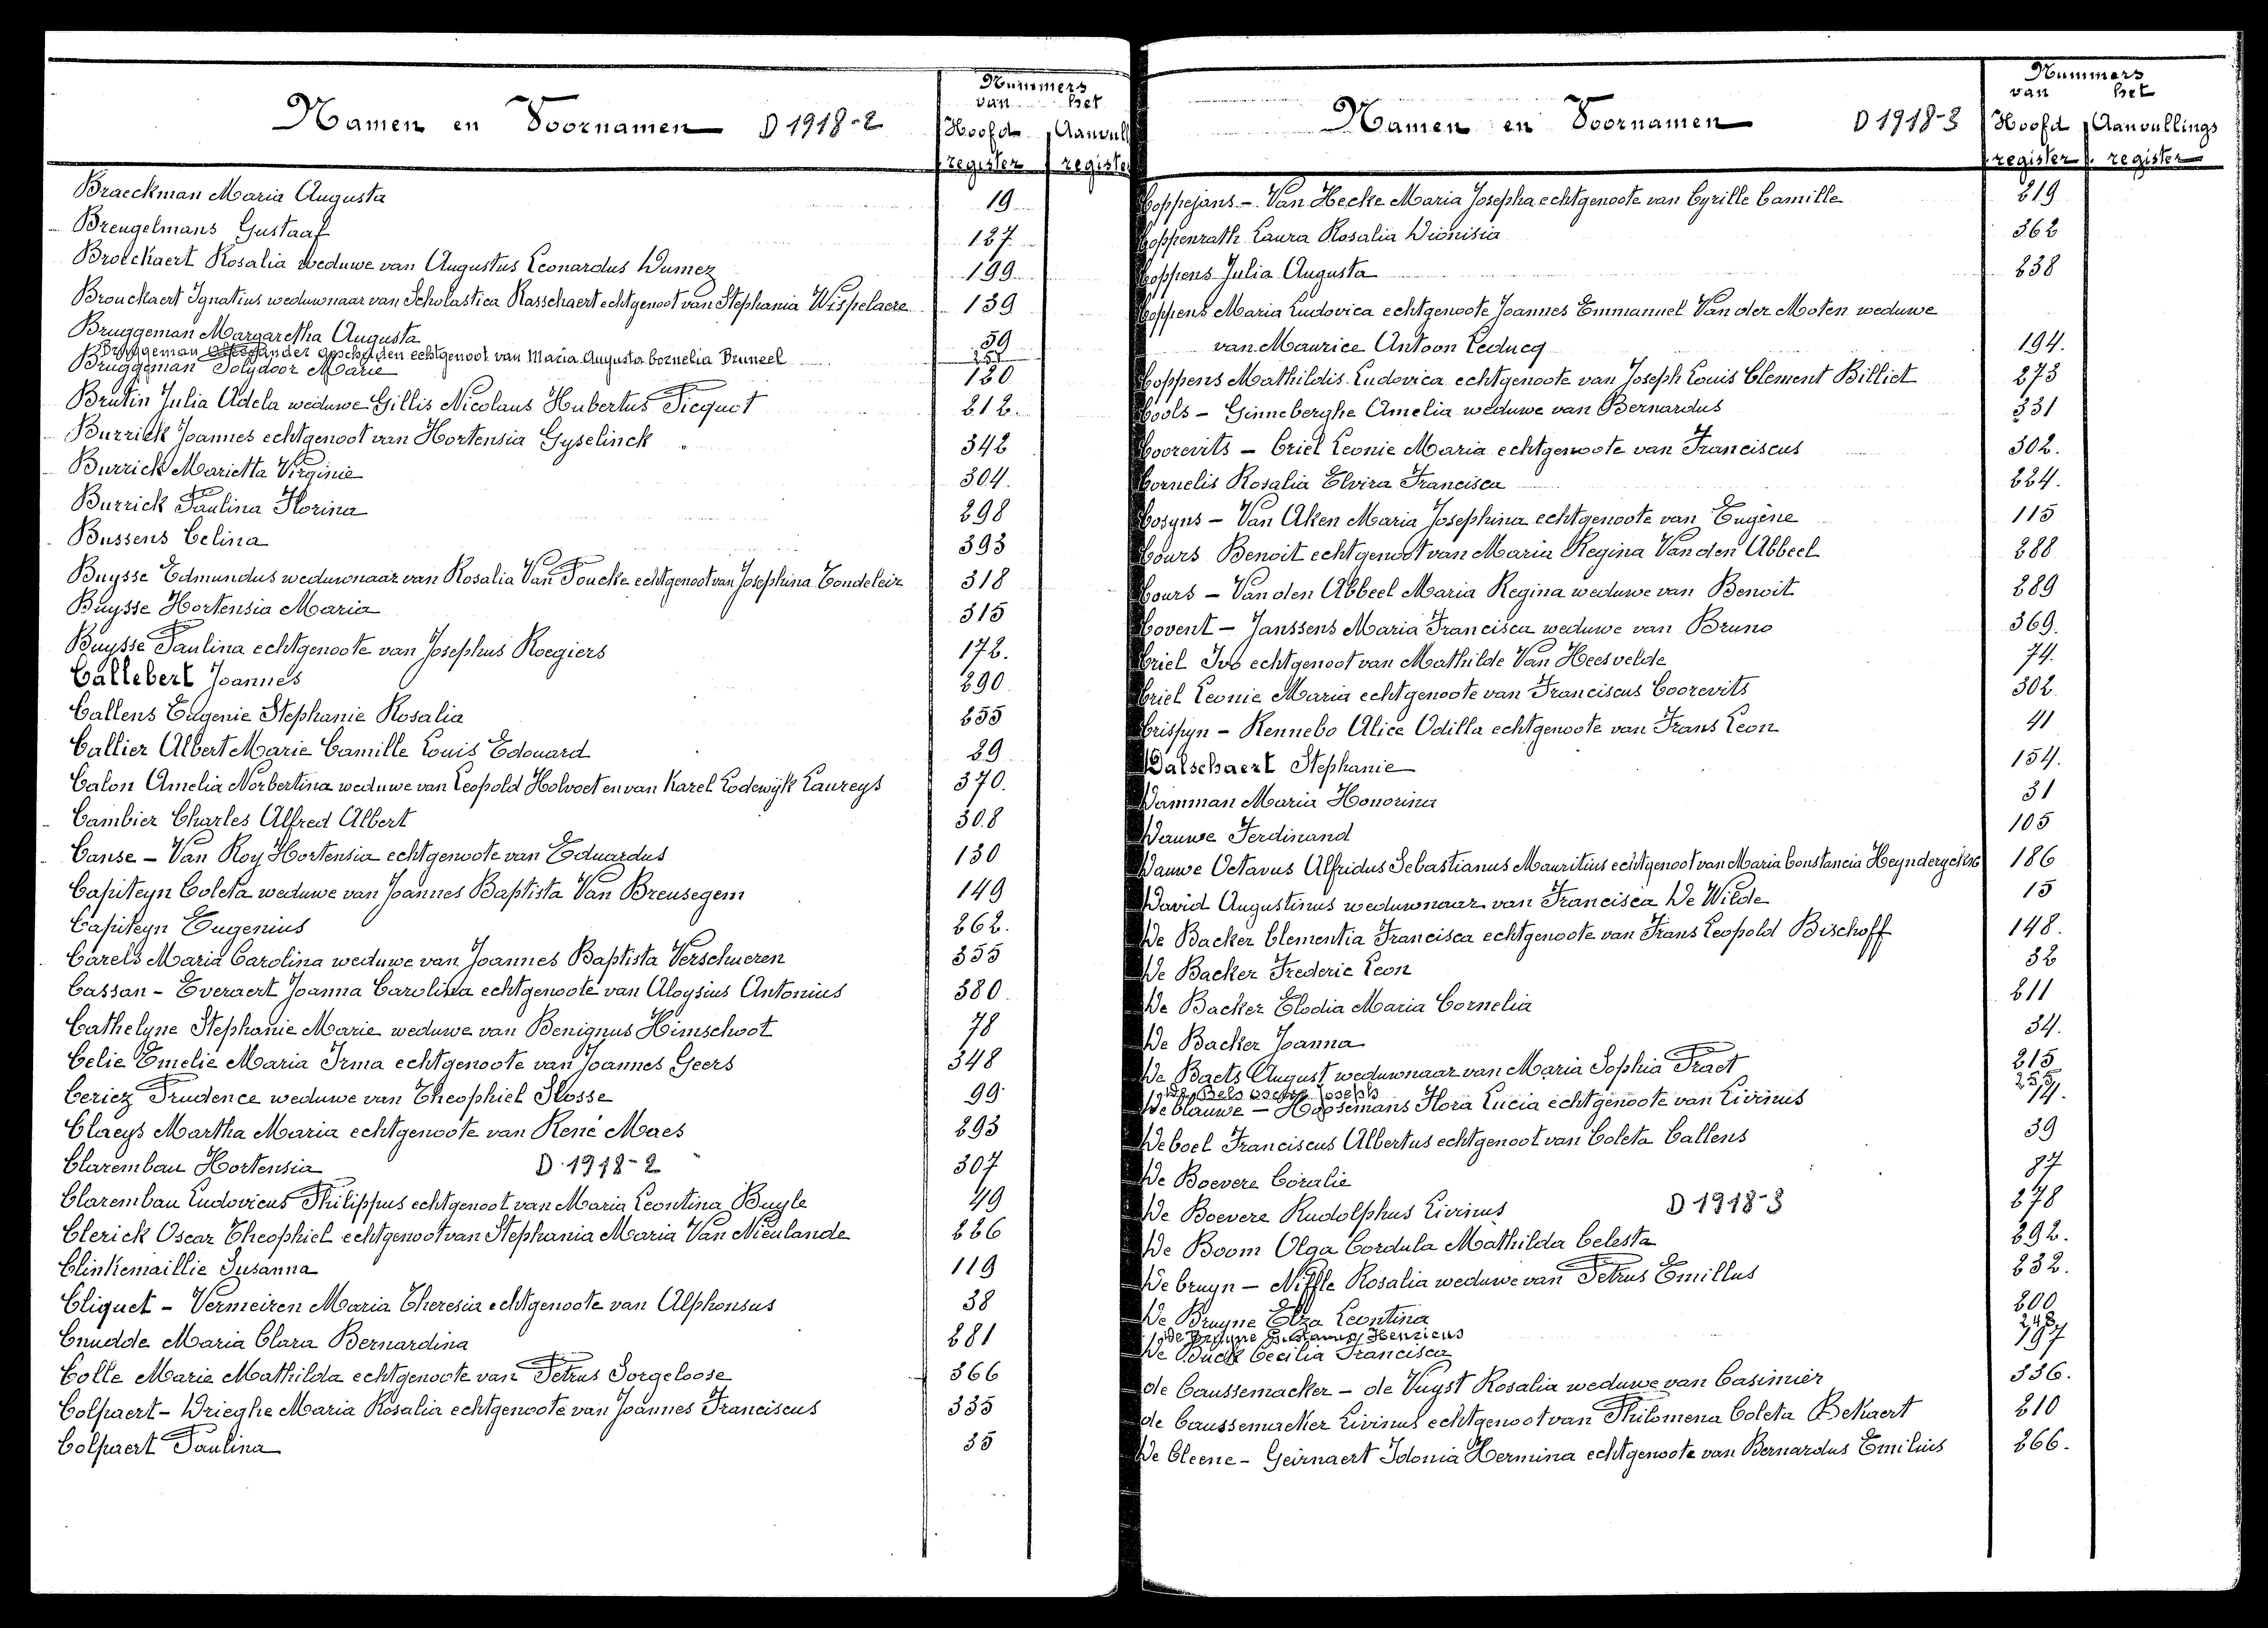 Namen en Voornamen D 1918-2
Nummers
van het
Hoofd Aanvull
register registe
Braeckman Maria Augusta 19
Breugelmans Gustaaf 127
Broeckaert Rosalia weduwe van Augustus Leonardus Dumez 199
Brouckaert Ignatius weduwnaar van Scholastica Rasschaert echtgenoot van Stephania Wispelaere 139
Bruggeman Margaretha Augusta 59
Bruggeman gescheiden echtgenoot van Maria Augusta Cornelia Bruneel 251
Bruggeman Polydoor Marie 120
Brutin Julia Adela weduwe Gillis Nicolaus Hubertus Picquot 212.
Burrick Joannes echtgenoot van Hortensia Gyselinck 342
Burrick Marietta Virginie 304.
Burrick Paulina Florina 298
Bussens Celina 393
Buysse Edmundus weduwnaar van Rosalia Van Poucke echtgenoot van Josephina Tondeleir 318
Buysse Hortensia Maria 315
Buysse Paulina echtgenoote van Josephus Roegiers 172.
Callebert Joannes 290
Callens Eugenie Stephanie Rosalia 255
Callier Albert Marie Camille Louis Edouard 29
Calon Amelia Norbertina weduwe van Leopold Holvoet en van Karel Lodewijk Laureys 370.
Cambier Charles Alfred Albert 308
Canse - Van Roy Hortensia echtgenoote van Eduardus 130
Capiteyn Coleta weduwe van Joannes Baptista Van Breusegem 149
Capiteyn Eugenius 262.
Carels Maria Carolina weduwe van Joannes Baptista Verschueren 355
Cassan - Everaert Joanna Carolina echtgenoote van Aloysius Antonius 380
Cathelyne Stephanie Marie weduwe van Benignus Himschoot 78
Celie Emelie Maria Irma echtgenoote van Joannes Geers 348
Ceriez Prudence weduwe van Theophiel Slosse 99
Claeys Martha Maria echtgenoote van René Maes 293
Clarembau Hortensia D 1918-2 307
Clarembau Ludovicus Philippus echtgenoot van Maria Leontina Buyle 49
Clerick Oscar Theophiel echtgenoot van Stephania Maria Van Nieulande 226
Clinkemaillie Susanna 119
Cliquet - Vermeiren Maria Theresia echtgenoote van Alphonsus 38
Cnudde Maria Clara Bernardina 281
Colle Marie Mathilda echtgenoote van Petrus Sorgeloose 366
Colpaert - Drieghe Maria Rosalia echtgenoote van Joannes Franciscus 335
Colpaert Paulina 35
Namen en Voornamen D 1918-3
Nummers
van het
Hoofd Aanvullings
register register
Coppejans - Van Hecke Maria Josepha echtgenoote van Cyrille Camille 219
Coppenrath Laura Rosalia Dionisia 362
Coppens Julia Augusta 238
Coppens Maria Ludovica echtgenoote Joannes Emmanuel Van der Moten weduwe
van Maurice Antoon Leducq 194.
Coppens Mathildis Ludovica echtgenoote van Joseph Louis Clement Billiet 273
Cools - Ginneberghe Amelia weduwe van Bernardus 331
Coorevits - Criel Leonie Maria echtgenoote van Franciscus 302.
Cornelis Rosalia Elvira Francisca 224.
Cosyns - Van Aken Maria Josephina echtgenoote van Eugène 115
Cours Benoit echtgenoot van Maria Regina Van den Abbeel 288
Cours - Van den Abbeel Maria Regina weduwe van Benoit 289
Covent - Janssens Maria Francisca weduwe van Bruno 369.
Criel Ivo echtgenoot van Mathilde Van Heesvelde 74.
Criel Leonie Maria echtgenoote van Franciscus Coorevits 302
Crispyn - Rennebo Alice Odilla echtgenoote van Frans Leon 41
Dalschaert Stephanie 154.
Damman Maria Honorina 31
Dauwe Ferdinand 105
Dauwe Octavus Alfridus Sebastianus Mauritius echtgenoot van Maria Constancia Heynderyckx 186
David Augustinus weduwnaar van Francisca De Wilde 15
De Backer Clementia Francisca echtgenoote van Frans Leopold Bischoff 148.
De Backer Frederic Leon 32
De Backer Elodia Maria Cornelia 211
De Backer Joanna 34.
De Baets August weduwnaar van Maria Sophia Praet 215
De Bels Joseph 255
De blauwe - Hoosemans Flora Lucia echtgenoote van Livinus 14.
De boel Franciscus Albertus echtgenoot van Coleta Callens 39
De Boevere Coralie 87
De Boevere Rudolphus Livinus D 1918-3 278
De Boom Olga Cordula Mathilda Celesta 292.
De bruyn - Niffle Rosalia weduwe van Petrus Emillus 232.
De Bruyne Elza Leontina 200
De Bruyne Gustavus Henricus 248
De Buck Cecilia Francisca 197
de Caussemacker - de Vuyst Rosalia weduwe van Casimier 336.
de Caussemacker Livinus echtgenoot van Philomena Coleta Bekaert 210
De Cleene - Geirnaert Idonia Hermina echtgenoote van Bernardus Emilius 266.